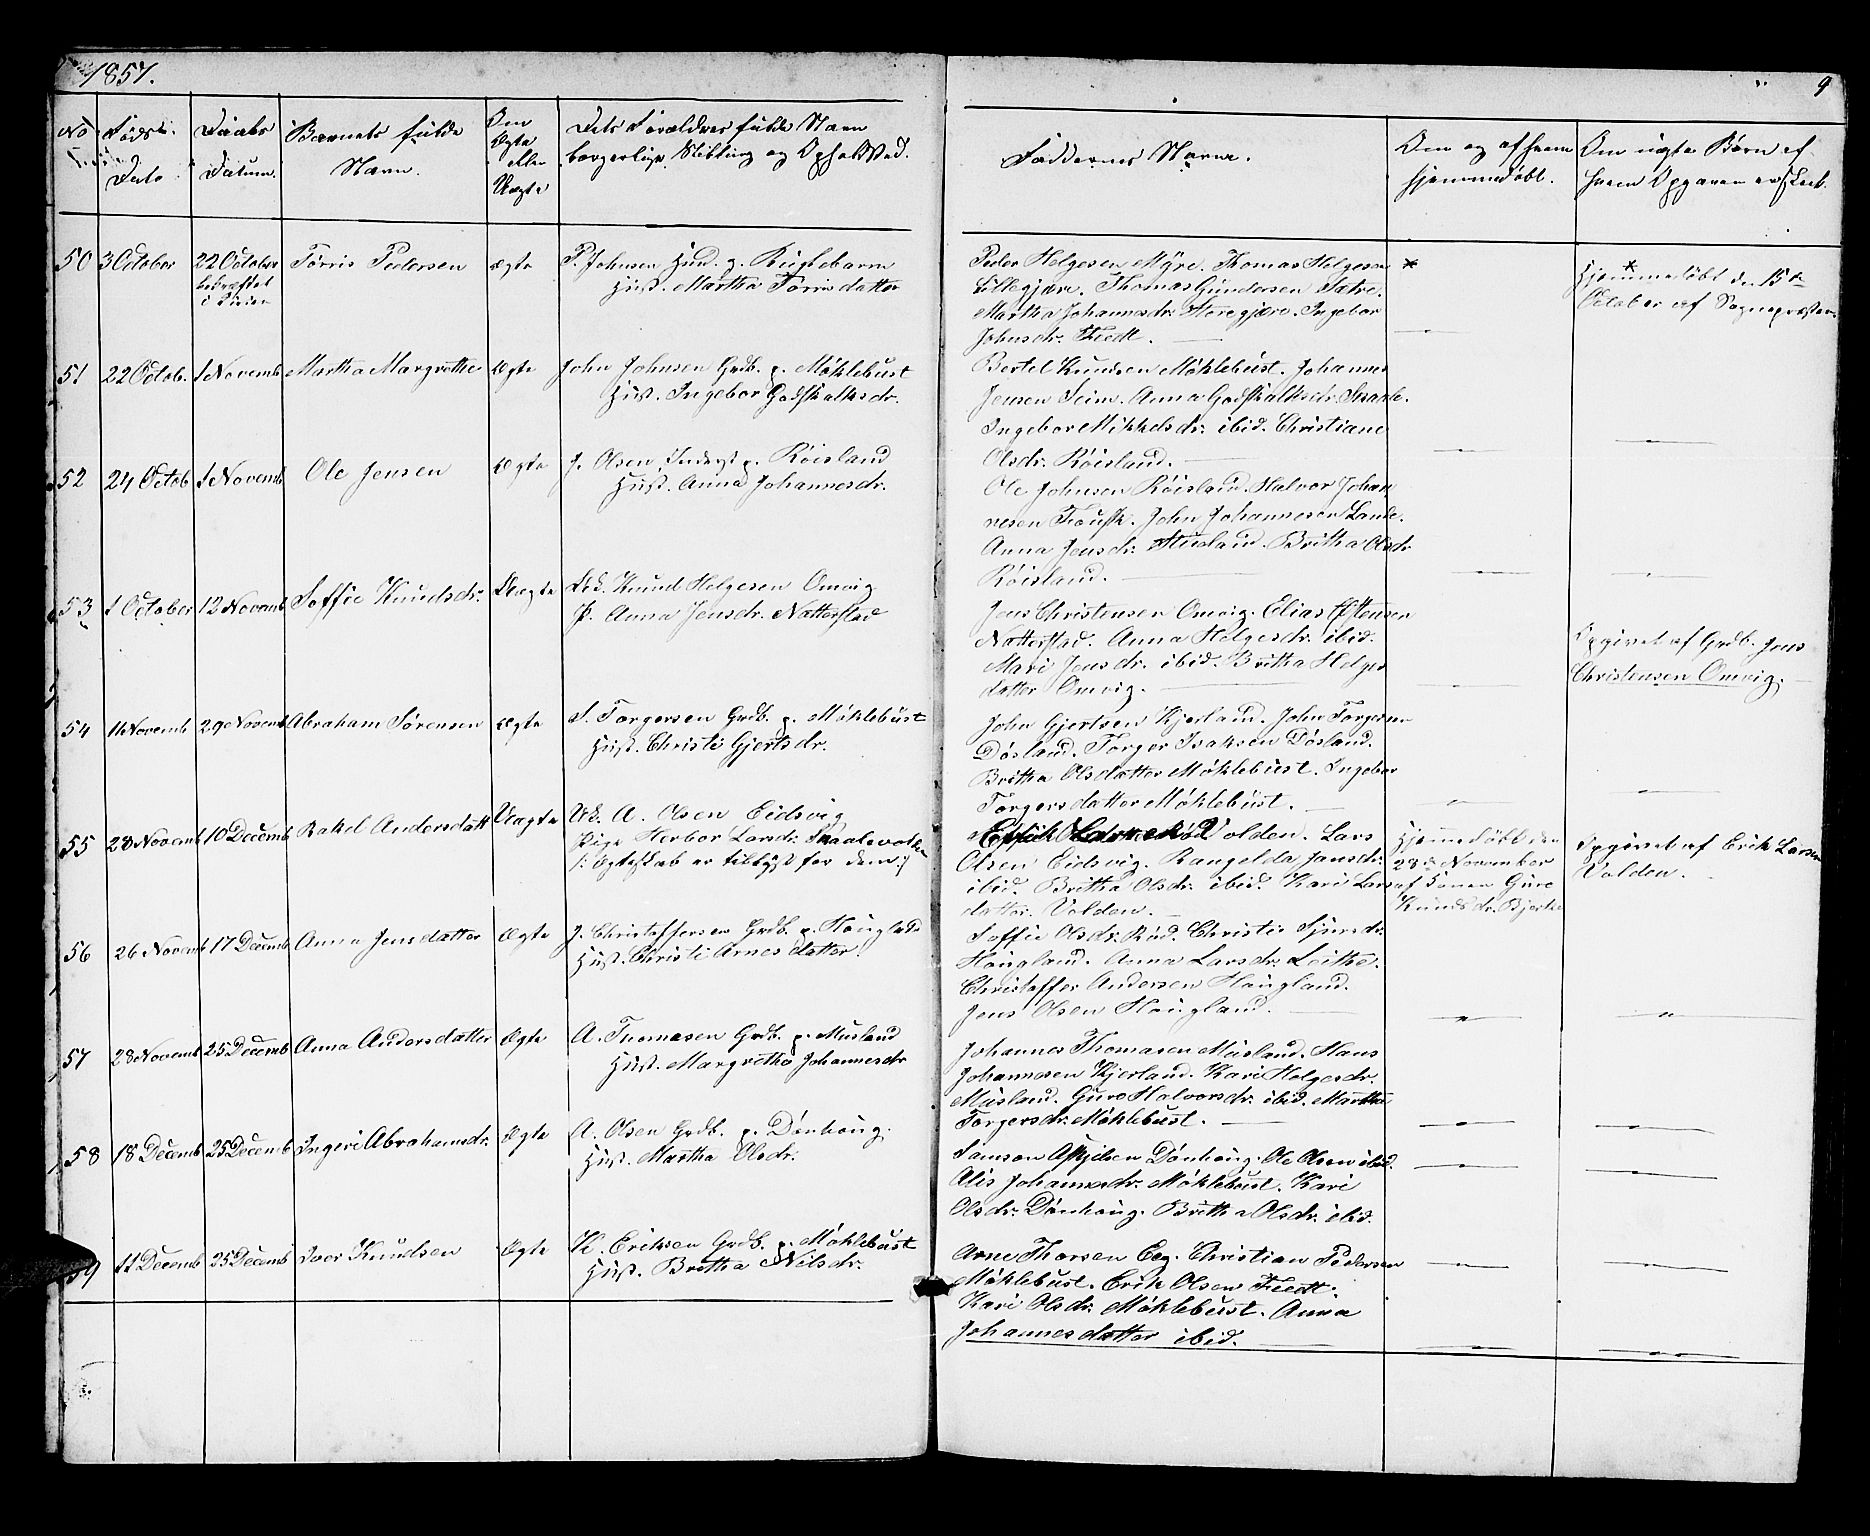 1857.
9
No
Føds.
Dato
Daabs
Datum.
Barnets fulde
Navn.
Om
Ægte
eller
Uægte
Dets Forældres fulde Navn
borgerlige Stilling og Opholdsted.
Faddernes Navne.
Om og af hvem
hjemmedøbt.
Om uægte Børn af
hvem Opgaven er skeet.
50
3 October
22 October
bekræftet
i Kirken
Tørris Pedersen
ægte
P. Johnsen Husm. p. Rustebarm
Hust. Martha Tørrisdatter
Peder Helgesen Myre. Thomas Helgesen
Lillegjære. Thomas Gundersen Sætre.
Martha Johannesdr. Storegjære. Ingebor
Johnsdr. Tvedt.
*
*
Hjemmedøbt den 15de
October af Sognepræsten
51
22 Octob.
1 Novemb
Martha Margrethe
Ægte
John Johnsen Grdb. p. Møklebust
Hust. Ingebor Godskalksdr.
Bertel Knudsen Møklebust. Johannes
Jensen Seim. Anna Godskalksdr. Skaale.
Ingebor Mikkelsdr. ibid. Christiane
Olsdr. Røisland.
52
24 Octob
1 Novemb
Ole Jensen
Ægte
J. Olsen, Inderst p. Røisland
Hust. Anna Johannesdr.
Ole Johnsen Røisland. Halvor Johan
nesen Trousk. John Johannesen Lande.
Anna Jensdr. Musland. Britha Olsdr
Røisland.
53
1 October
12 Novemb
Soffie Knudsdr.
Uægte
Knud Helgesen Omvig
P. Anna Jensdr. Nætterstad
Jens Christensen Omvig. Elias Ostensen
Nætterstad. Anna Helgesdr. ibid.
Mari Jensdr. ibid. Britha Helges
datter Omvig.
Opgivet af Grdb. Jens
Christensen Omvig.
54
11 Novemb
29 Novemb
Abraham Sørensen
Ægte
S. Torgersen Grdb. p. Møklebust
Hust. Christi Gjertsdr.
John Gjertsen Kjerland. John Torgersen
Døsland. Torger Isaksen Døsland.
Britha Olsdatter Møklebust. Ingebor
Torgersdatter Møklebust.
55
28 Novemb
10 Decemb
Rakel Andersdatt
Uægte
A. Olsen Eidsvig
Pige Herbor Larsdr. Skaalevolden
/: Ægteskab er tillyst for dem :/
Volden. Lars
Olsen Eidsvig. Rangelda Jansdr.
ibid. Britha Olsdr. ibid. Kari Lars
datter. Volden.
Hjemmedøbt den
28de November
af Konen Guro
Knudsdr. Bjerke
Opgivet af Erik Larsen
Volden.
56
26 Novemb
17 Decemb
Anna Jensdatter
Ægte
J. Christoffersen Grdb. p. Hougland
Hust. Christi Arnesdatter
Soffie Olsdr. Rød. Christi Sjursdr.
Hougland. Anna Larsdr. Leithe.
Christoffer Andersen Hougland.
Jens Olsen Hougland.
57
28 Novemb
25 Decemb
Anna Andersdatter
Ægte
A. Thomasen Grdb. p. Musland
Hust. Margretha Johannesdr
Johannes Thomasen Musland. Hans
Johannesen Kjerland. Kari Helgesdr.
Musland. Guro Halvorsdr. ibid. Martha
Torgersdr. Møklebust.
58
18 Decemb
25 Decemb
Ingeri Abrahamsdr.
Ægte
A. Olsen Grdb. p. Dønhoug.
Hust. Martha Olsdr.
Samson Askjelsen Dønhoug. Ole Olsen ibid.
Alis Johannesdr. Møklebust. Kari
Olsdr. Dønhoug. Britha Olsdr. ibid.
59
11 Decemb
25 Decemb
Iver Knudsen
Ægte
K. Eriksen Grdb. p. Møklebust
Hust. Britha Nilsdr.
Arne Thorsen Eeg. Christian Pedersen
Møklebust. Erik Olsen Tvedt.
Kari Olsdr. Møklebust. Anna
Johannesdatter ibid.